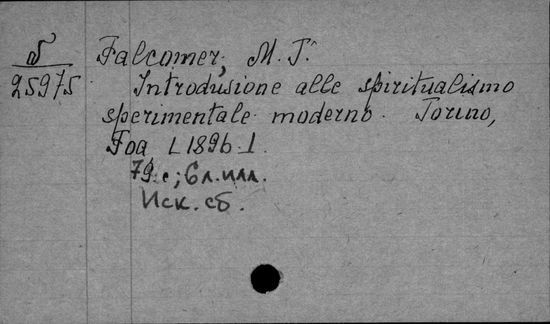 Falcomer, M. T.
25975
Introdusione alle spiritualismo
sperimentale moderno. Torino,
Foa [1896].
79 с; 6 л. илл.
Иск. сб.